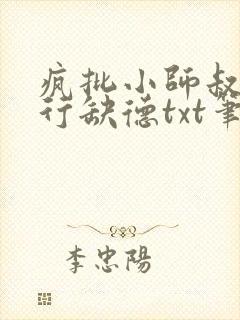 疯批小師叔
行缺德txt筆
李忠陽